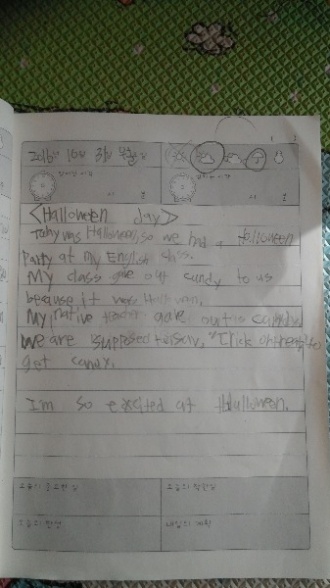 2016년 10월 31일 월요일
<Halloween day>
Today was Halloween, so we had a Halloween
Party at my English class.
My class give out candy to us
because it was
My native teacher gave out us candy.
We are supposed to say, "Trick or treat" to
get candy.
I'm so excited at Halloween.
오늘의 중요한 일
오늘의 착한 일
오늘의 반성
내일의 계획